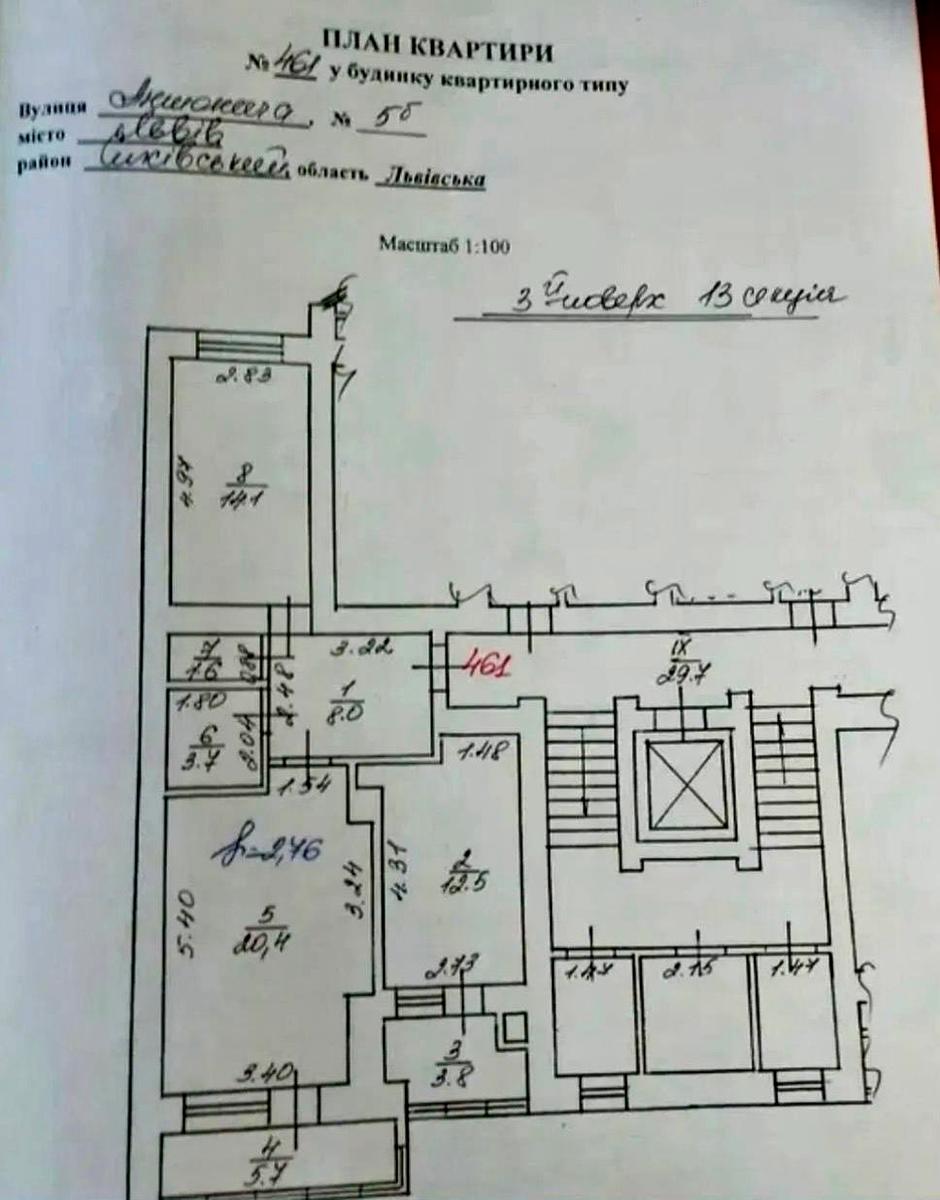 ПЛАН КВАРТИРИ
№ 461 у будинку квартирного типу
Вулиця , № 5б
місто м Львів
район Сихівський область Львівська
Масштаб 1:100
3й поверх 13 секція
2.83
4.97
8
14.1
7
1.6
0.88
3.22
461
IX
29.7
1.80
2.48
1
8.0
6
3.7
2.04
1.54
1.48
h=2,76
5.40
3.24
4.31
2
12.5
5
20,4
2.73
1.47
2.15
1.47
3.40
3
3.8
4
5.7